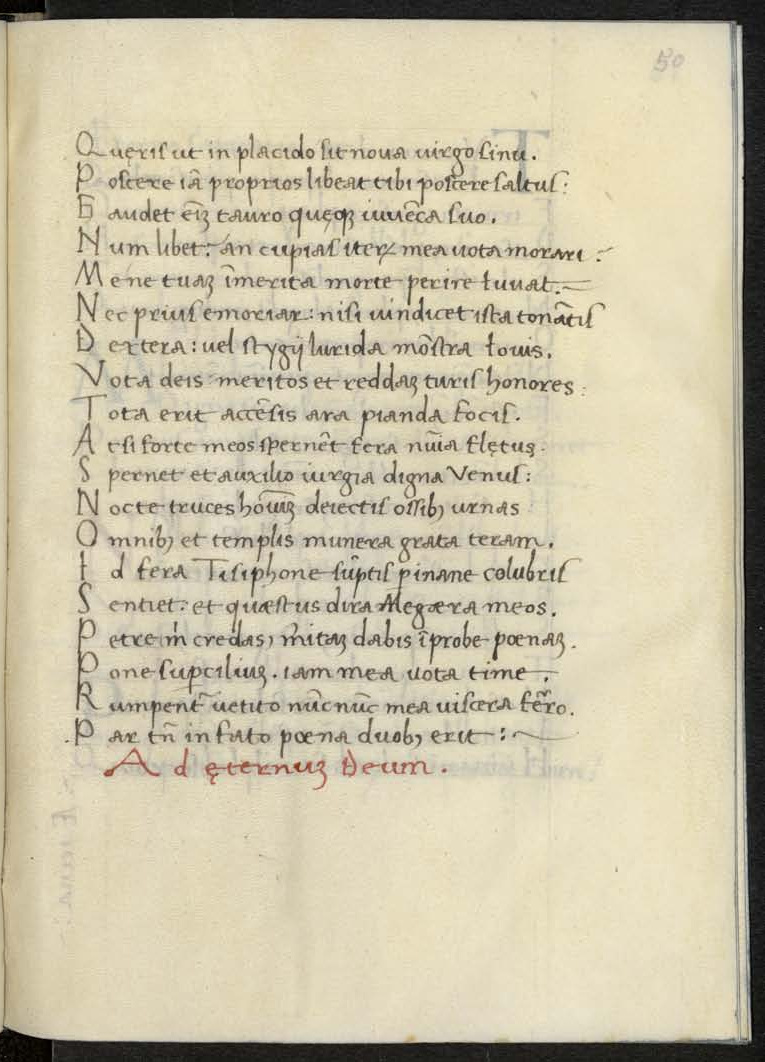 50
Quęris ut in placido sit noua uirgo sinu.
Poscere iā proprios libeat tibi poscere saltus:
Gaudet eīȝ tauro quęqȝ iuuēca suo.
Num libet: an cupias iteꝝ mea uota morari:
Me ne tuaȝ īmerita morte perire Iuuat.
Nec prius emoriar: nisi uindicet ista tonātis
Dextera: uel stygij lurida mōstra Iouis.
Vota deis meritos et reddaȝ turis honores:
Tota erit accēsis ara pianda focis.
At si forte meos spernēt fera nūia flętus.
Spernet et auxilio iurgia digna Venus:
Nocte truces deiectis ossibȝ urnas
Omnibȝ et templis munera grata teram.
Id fera Tisiphone sūptis pinane colubris
Sentiet: et quæstus dira Megæra meos.
Petre m̄ credas, m̄itaȝ dabis īprobe pœnaȝ.
Pone suꝑciliuȝ. iam mea uota time.
Rumpent᷑ uetito nūc nūc mea uiscera fērro.
Par tn̄ in fato pœna duobȝ erit:
Ad ęternuȝ Deum.